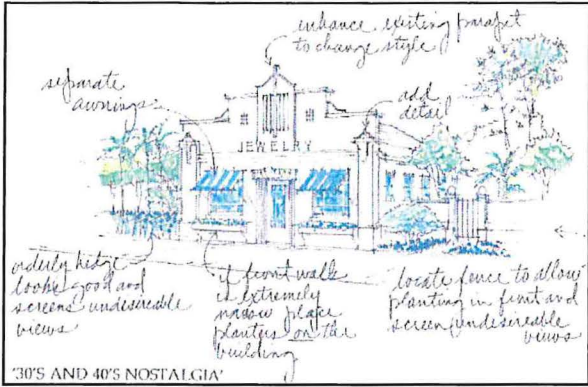 enhance existing parapet
to change style
separate
awnings
add
detail
JEWELRY
orderly hedge
looks good and
screens undesireable
views
if front walk
is extremely
narrow place
planters on the
building
locate fence to allow
planting in front and
screen undesireable
views
'30'S AND 40'S NOSTALGIA'